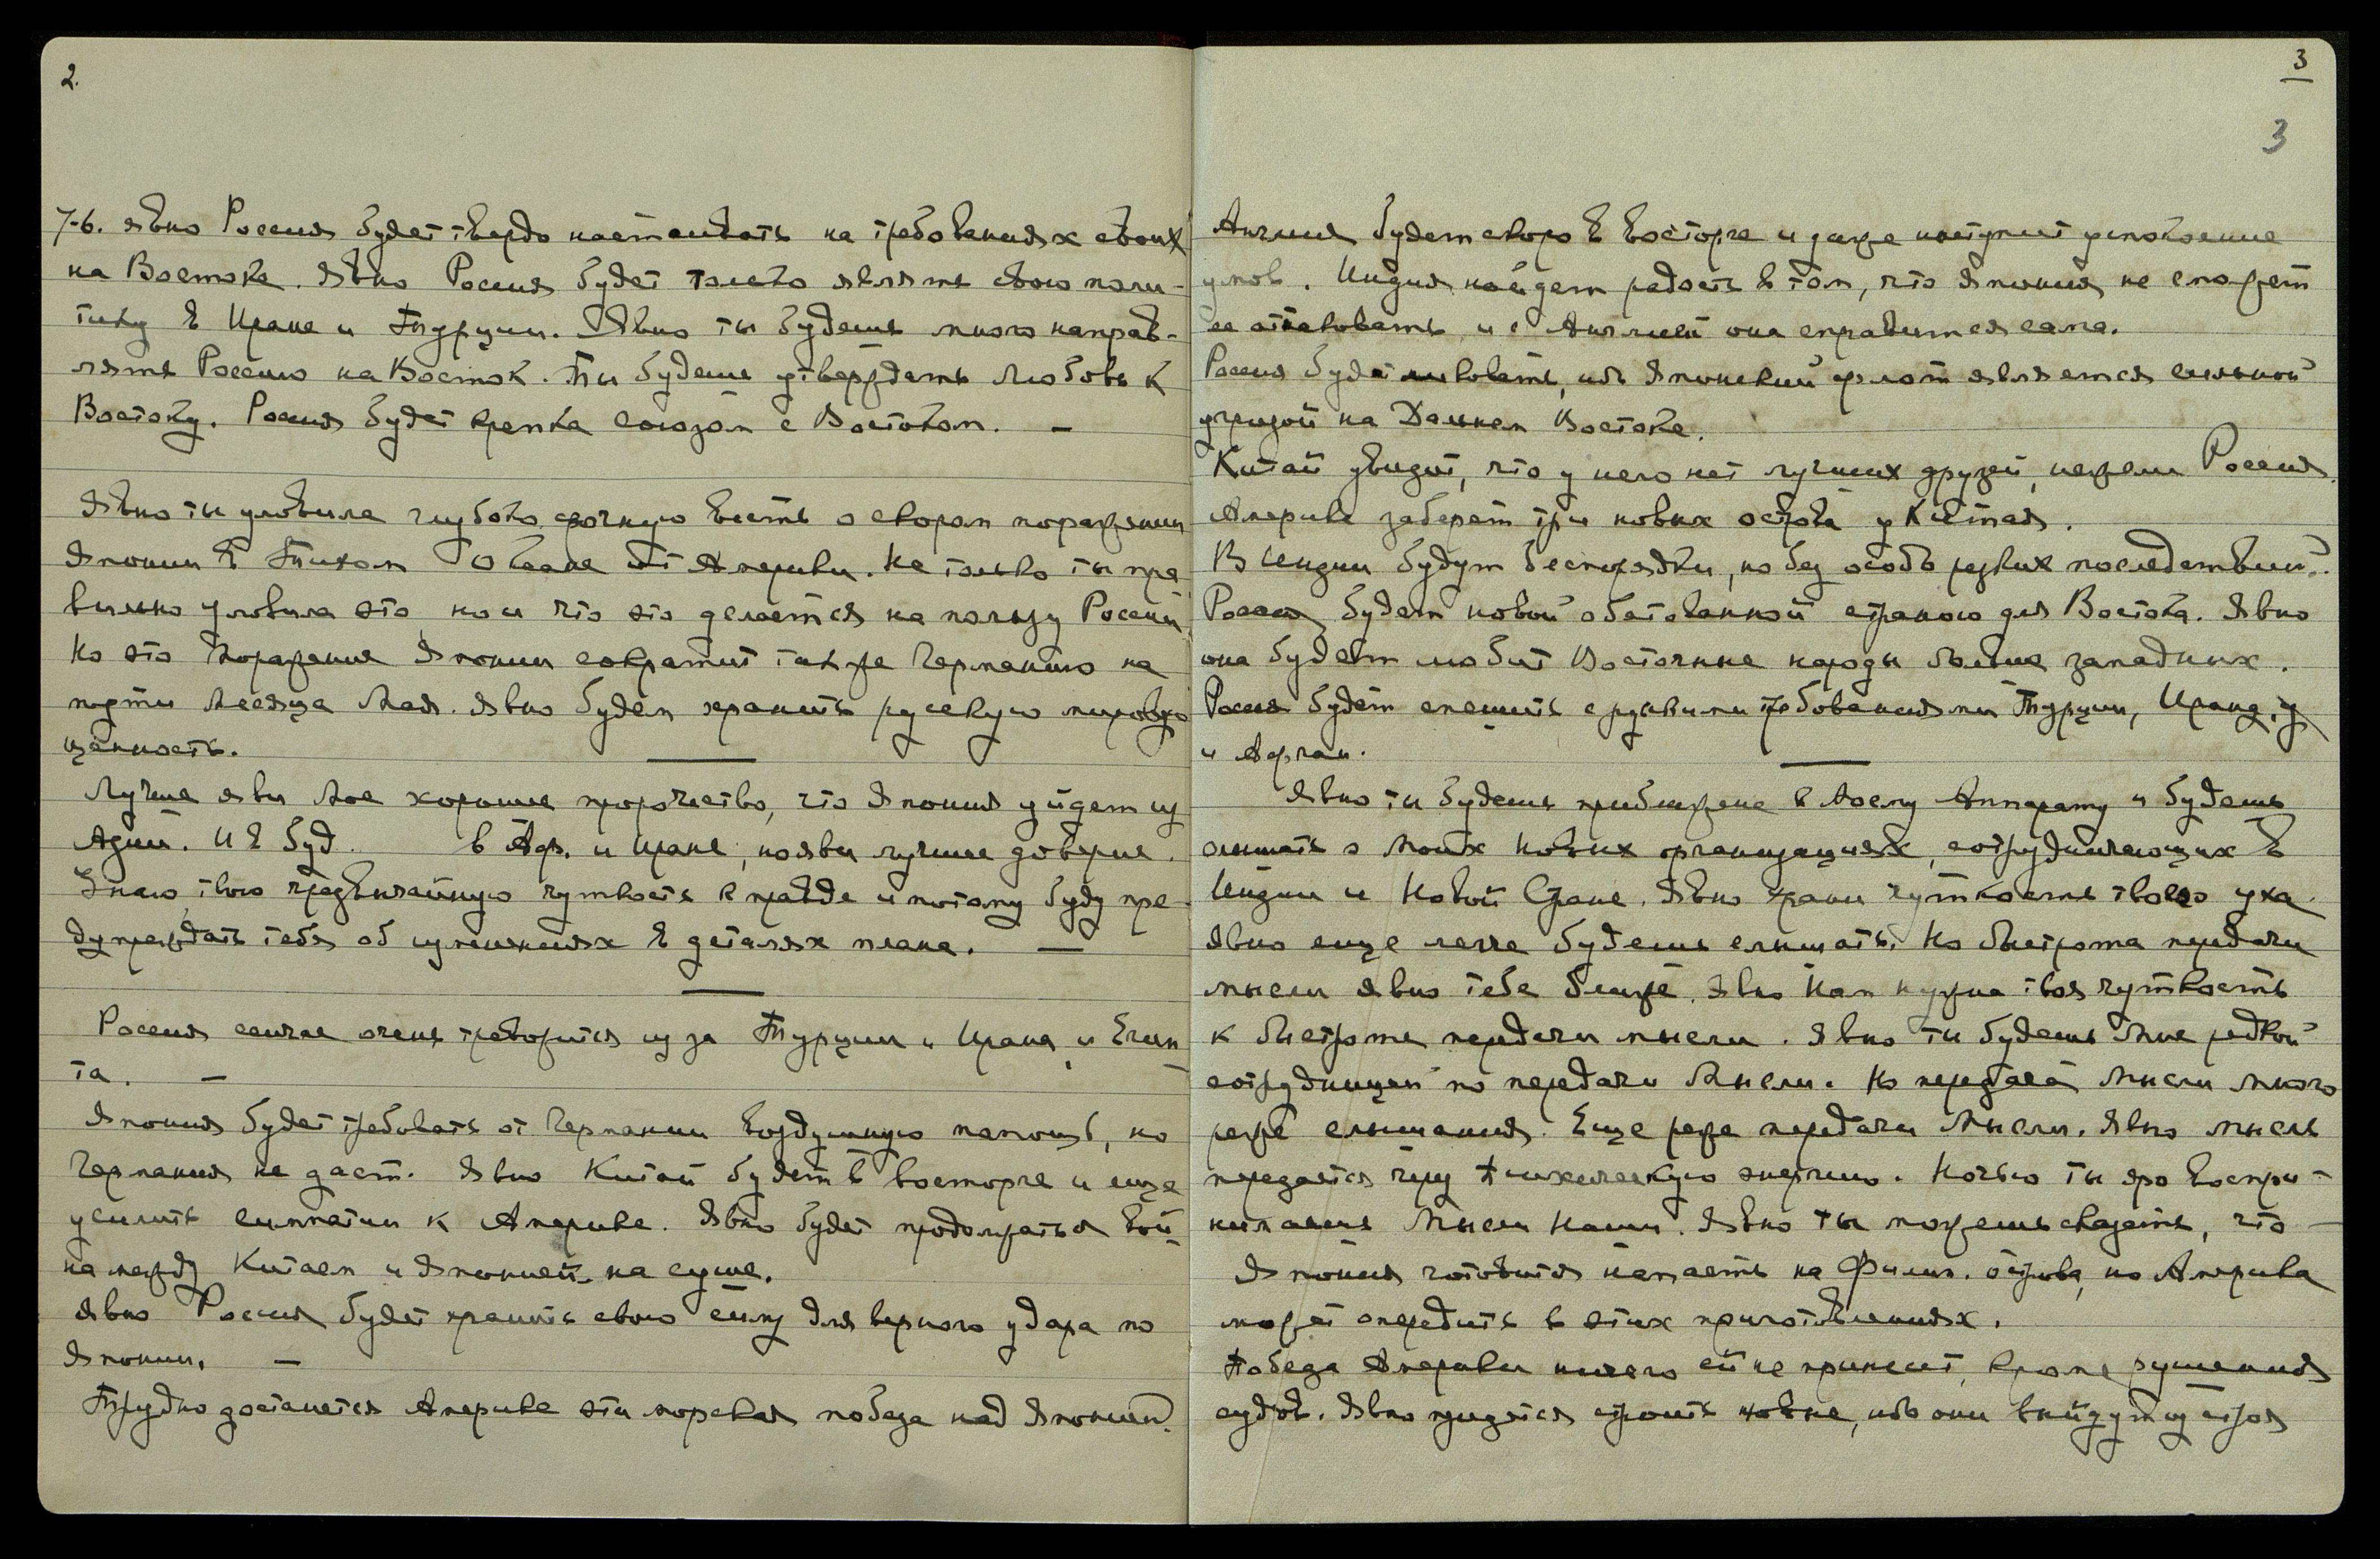 2.
7-6. Явно Россия будет твердо настаивать на требованиях своих
на Востоке. Явно Россия будет только являть свою поли-
тику в Иране и Турции. Явно ты будешь много направ-
лять Россию на Восток. Ты будешь утверждать Любовь к
Востоку. Россия будет крепка союзом с Востоком. —
Явно ты уловила глубоко срочную весть о скором поражении
Японии в Тихом Океане от Америки. Не только ты пра
вильно уловила это но и что это делается на пользу России
Но это поражение Японии сократит также Германию на
почти Месяца Мая. Явно будем хранить русскую мировую
ценность.
Лучше яви Мое хорошее пророчество, что Япония уйдет из
Азии. И в буд. в Афг. и Иране, но яви лучше доверие.
Знаю твою чрезвычайную чуткость к правде и потому буду пре-
дупреждать тебя об изменениях в деталях плана. —
Россия сейчас очень тревожится из за Турции и Ирана и Егип
та. —
Япония будет требовать от Германии воздушную помощь, но
Германия не даст. Явно Китай будет в восторге и еще
усилить симпатии к Америке. Явно будет продолжаться вой
на между Китаем и Японией на суше.
Явно Россия будет хранить свою силу для верного удара по
Японии. —
Трудно достанется Америке эта морская победа над Японией.
3
3
Англия будет скоро в восторге и даже наступит успокоение
умов. Индия найдет радость в том, что Япония не сможет
ее атаковать и с Англией она справится сама.
Россия будет ликовать, ибо Японский флот является сильной
угрозой на Дальнем Востоке.
Китай увидит, что у него нет лучших друзей, нежели Россия.
Америка заберет три новых острова у Китая.
В Индии будут беспорядки, но без особо резких последствий.
Россия будет новой обетованной страною для Востока. Явно
она будет любит Восточные народы больше западных.
Россия будет спешить с русскими требованиями Турции, Ирана,
и Афган.
Явно ты будешь приближена к Моему Аппарату и будешь
слышать о Моих новых организациях, сотрудничающих в
Индии и Новой Стране. Явно храни чуткость твоего уха.
Явно еще легче будешь слышать. Но быстрота передачи
мысли явно тебе ближе. Явно Нам нужна твоя чуткость
к быстроте передачи мысли. Явно ты будешь Мне редкой
сотрудницей по передачи Мысли. Но передача Мысли много
реже слышания. Еще реже передачи Мысли. Явно мысль
передается через психическую энергию. Ночью ты яро воспри-
нимаешь Мысли Наши. Явно ты можешь сказать, что —
Япония готовится напасть на Филип. острова, но Америка
может опередить в этих приготовлениях.
Победа Америки ничего ей не принесет, кроме рушения
судов. Явно придется строить новые, ибо они выйдут из строя